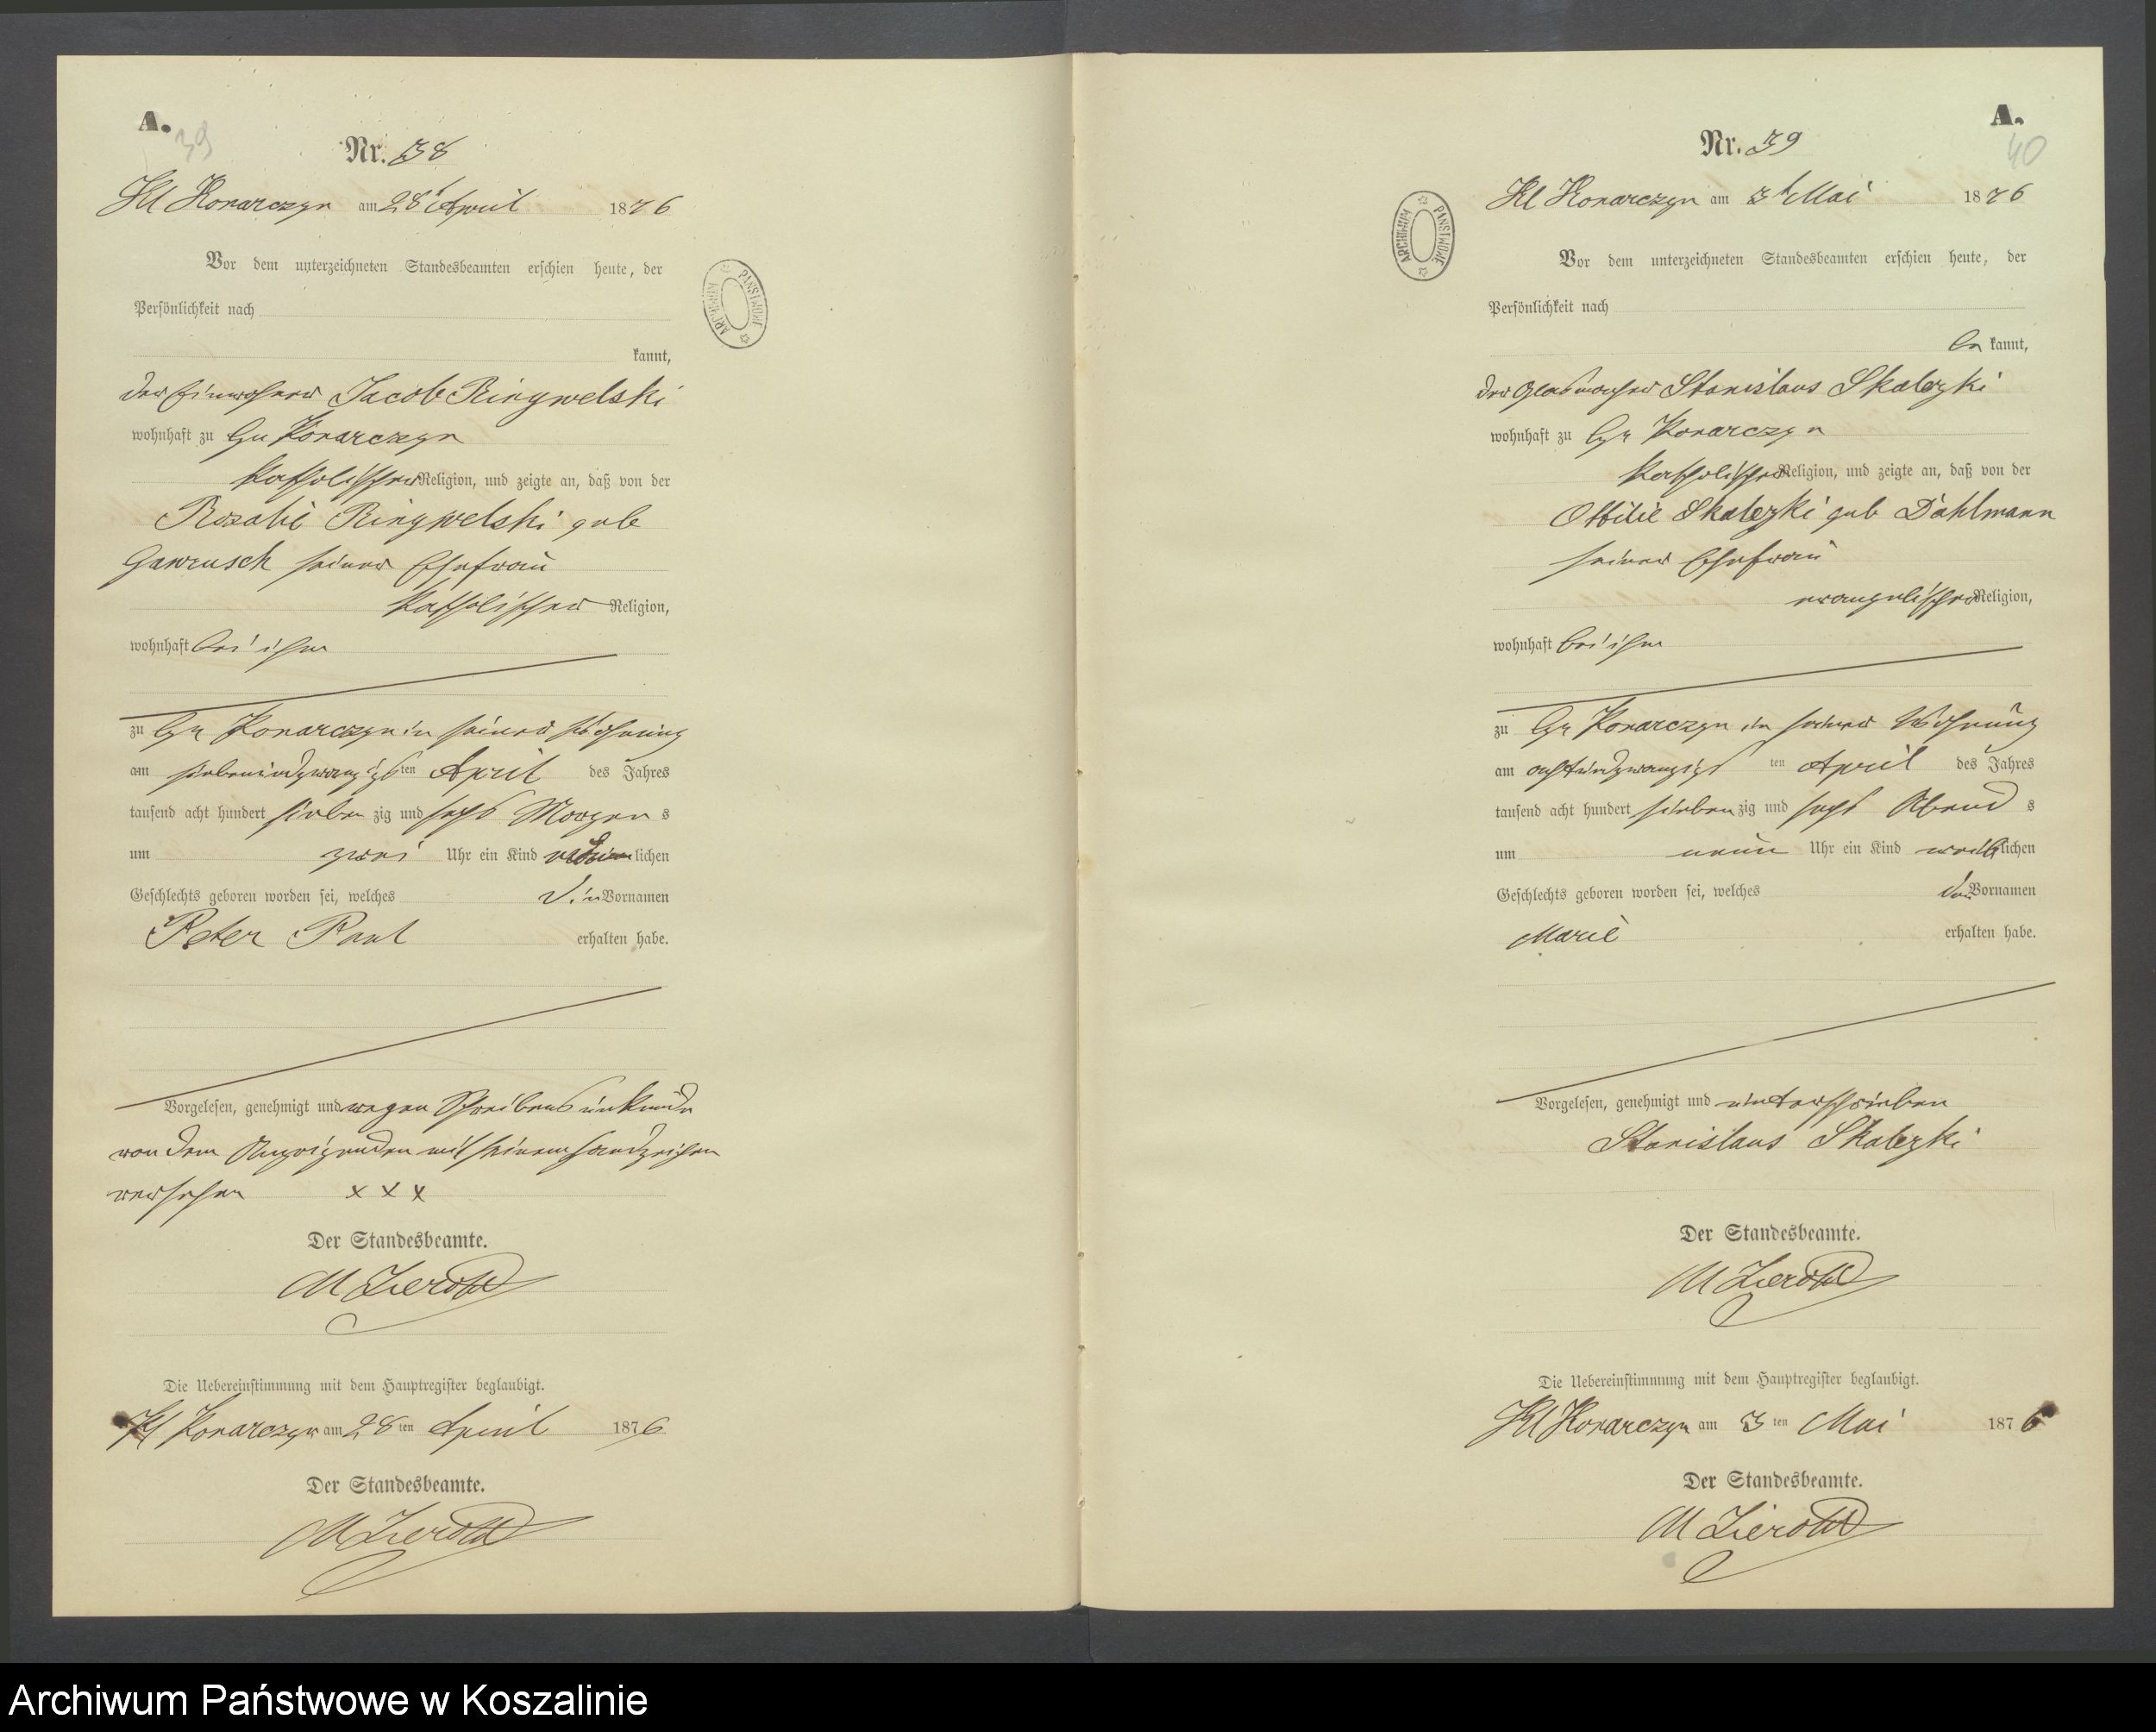 A.
39
Nr. 38
Kl Konarczyn am 28t April 1876
Vor dem unterzeichneten Standesbeamten erschien heute, der
Persönlichkeit nach
kannt,
der Einwohner Jacob Ringwelski
wohnhaft zu Gr Konarczyn
katholischer Religion, und zeigte an, daß von der
Rosalie Ringwelski geb
Gawrusch seiner Ehefrau
katholischer Religion,
wohnhaft bei ihm
zu Gr Konarczyn in seiner Wohnung
am siebenundzwanzigsten April des Jahres
tausend acht hundert siebenzig und sechs Morgens
um zwei Uhr ein Kind lichen
Geschlechts geboren worden sei, welches die Vornamen
Peter Paul erhalten habe.
Vorgelesen, genehmigt und wegen Schreibensunkunde
von dem Anzeigenden mit seinem Handzeichen
versehen x x x
Der Standesbeamte.
M
Die Uebereinstimmung mit dem Hauptregister beglaubigt.
Kl Konarczyn am 28ten April 1876
Der Standesbeamte.
M
ARCHIWUM PAŃSTWOWE
A.
40
Nr. 39
Kl Konarczyn am 3t Mai 1876
Vor dem unterzeichneten Standesbeamten erschien heute, der
Persönlichkeit nach
bekannt,
der Glasmacher Stanislaus Skalezki
wohnhaft zu Gr Konarczyn
katholischer Religion, und zeigte an, daß von der
Ottilie Skalezki geb Dahlmann
seiner Ehefrau
evangelischer Religion,
wohnhaft bei ihm
zu Gr Konarczyn in seiner Wohnung
am achtundzwanzigsten April des Jahres
tausend acht hundert siebenzig und sechs Abends
um neun Uhr ein Kind weiblichen
Geschlechts geboren worden sei, welches den Vornamen
Marie erhalten habe.
Vorgelesen, genehmigt und unterschrieben
Stanislaus Skalezki
Der Standesbeamte.
M
Die Uebereinstimmung mit dem Hauptregister beglaubigt.
Kl Konarczyn am 3ten Mai 1876
Der Standesbeamte.
M
ARCHIWUM PAŃSTWOWE
Archiwum Państwowe w Koszalinie